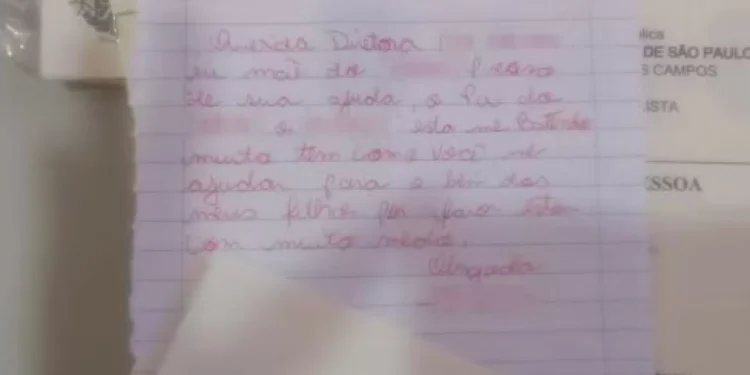 Querida Diretora
eu maẽ do Preciso
de sua ajuda, o Pai do
e esta me Batendo
muito tem como você me
ajudar para o bem dos
meus filho por favor estou
com muito medo.
Obrigada
lica
DE SÃO PAULO
S CAMPOS
ISTA
ESSOA